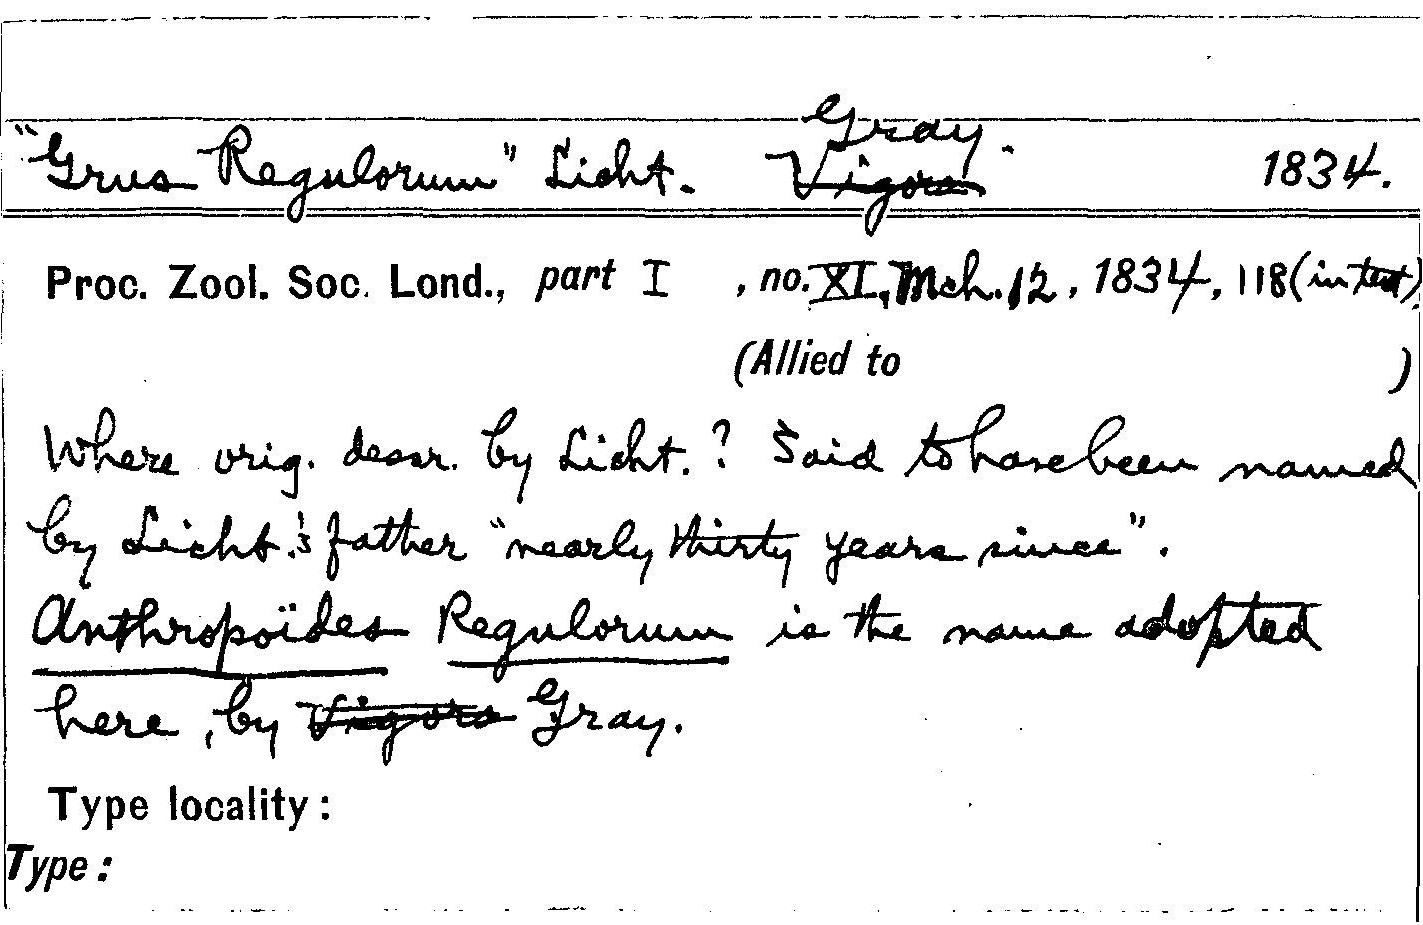 "Grus Regulorum" Licht. Vigors Gray. 1834.
Proc. Zool. Soc. Lond., part I , no. XI, Mch. 12, 1834, 118 (in text)
(Allied to )
Where orig. descr. by Licht.? Said to have been named
by Licht.'s father "nearly thirty years since".
Anthropoïdes Regulorum is the name adopted
here, by Vigors Gray.
Type locality:
Type: